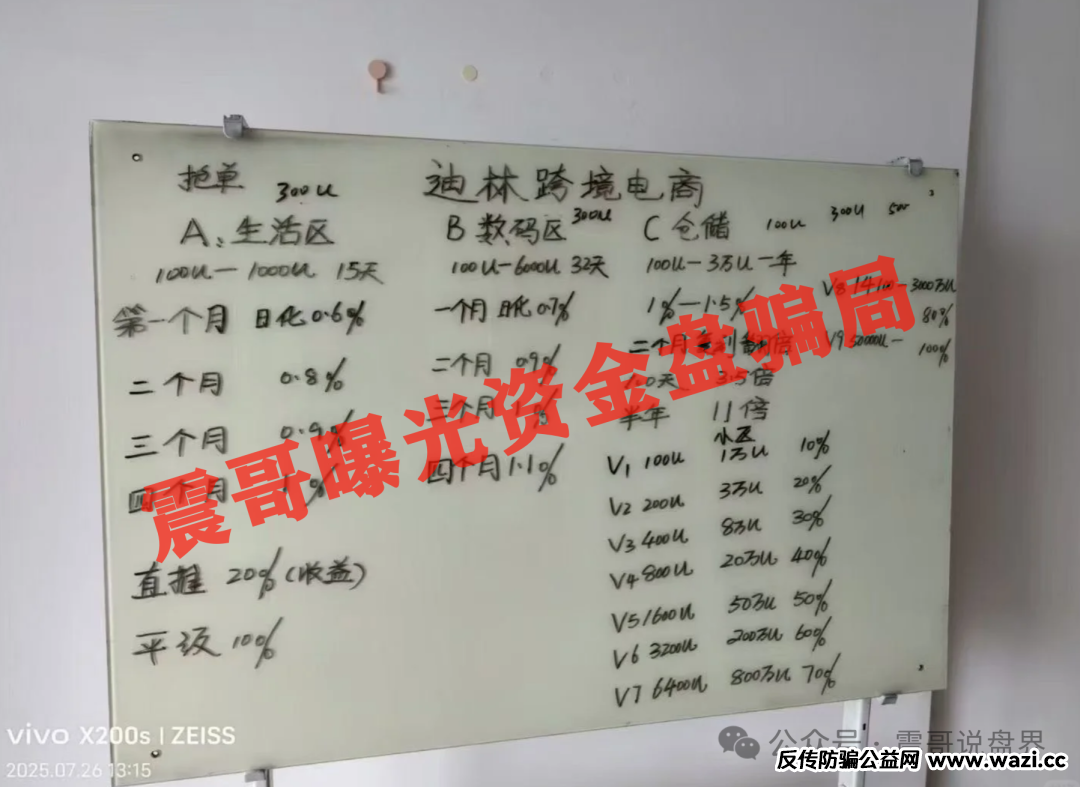 抢单 300U 迪林跨境电商
A、生活区 B 数码区 300U C 仓储 100U 300U 500
100U—1000U 15天 100U—6000U 32天 100U—3万U一年
第一个月 日化0.6% 一个月 日化0.7% 1%—1.5% V8 14100-3000万U 80%
二个月 0.8% 二个月 0.9% 二个月 翻倍 V9 50000U— 100%
三个月 0.9% 三个月 3.5倍
四个月 % 四个月 1.1% 半年 11倍
小区
V1 100U 1万U 10%
V2 200U 3万U 20%
V3 400U 8万U 30%
V4 800U 20万U 40%
V5 1600U 50万U 50%
V6 3200U 200万U 60%
V7 6400U 800万U 70%
直推 20%(收益)
平级 10%
震哥曝光资金盘骗局
vivo X200s | ZEISS
2025.07.26 13:15
公众号·震哥说盘界
反传防骗公益网 www.wazi.cc